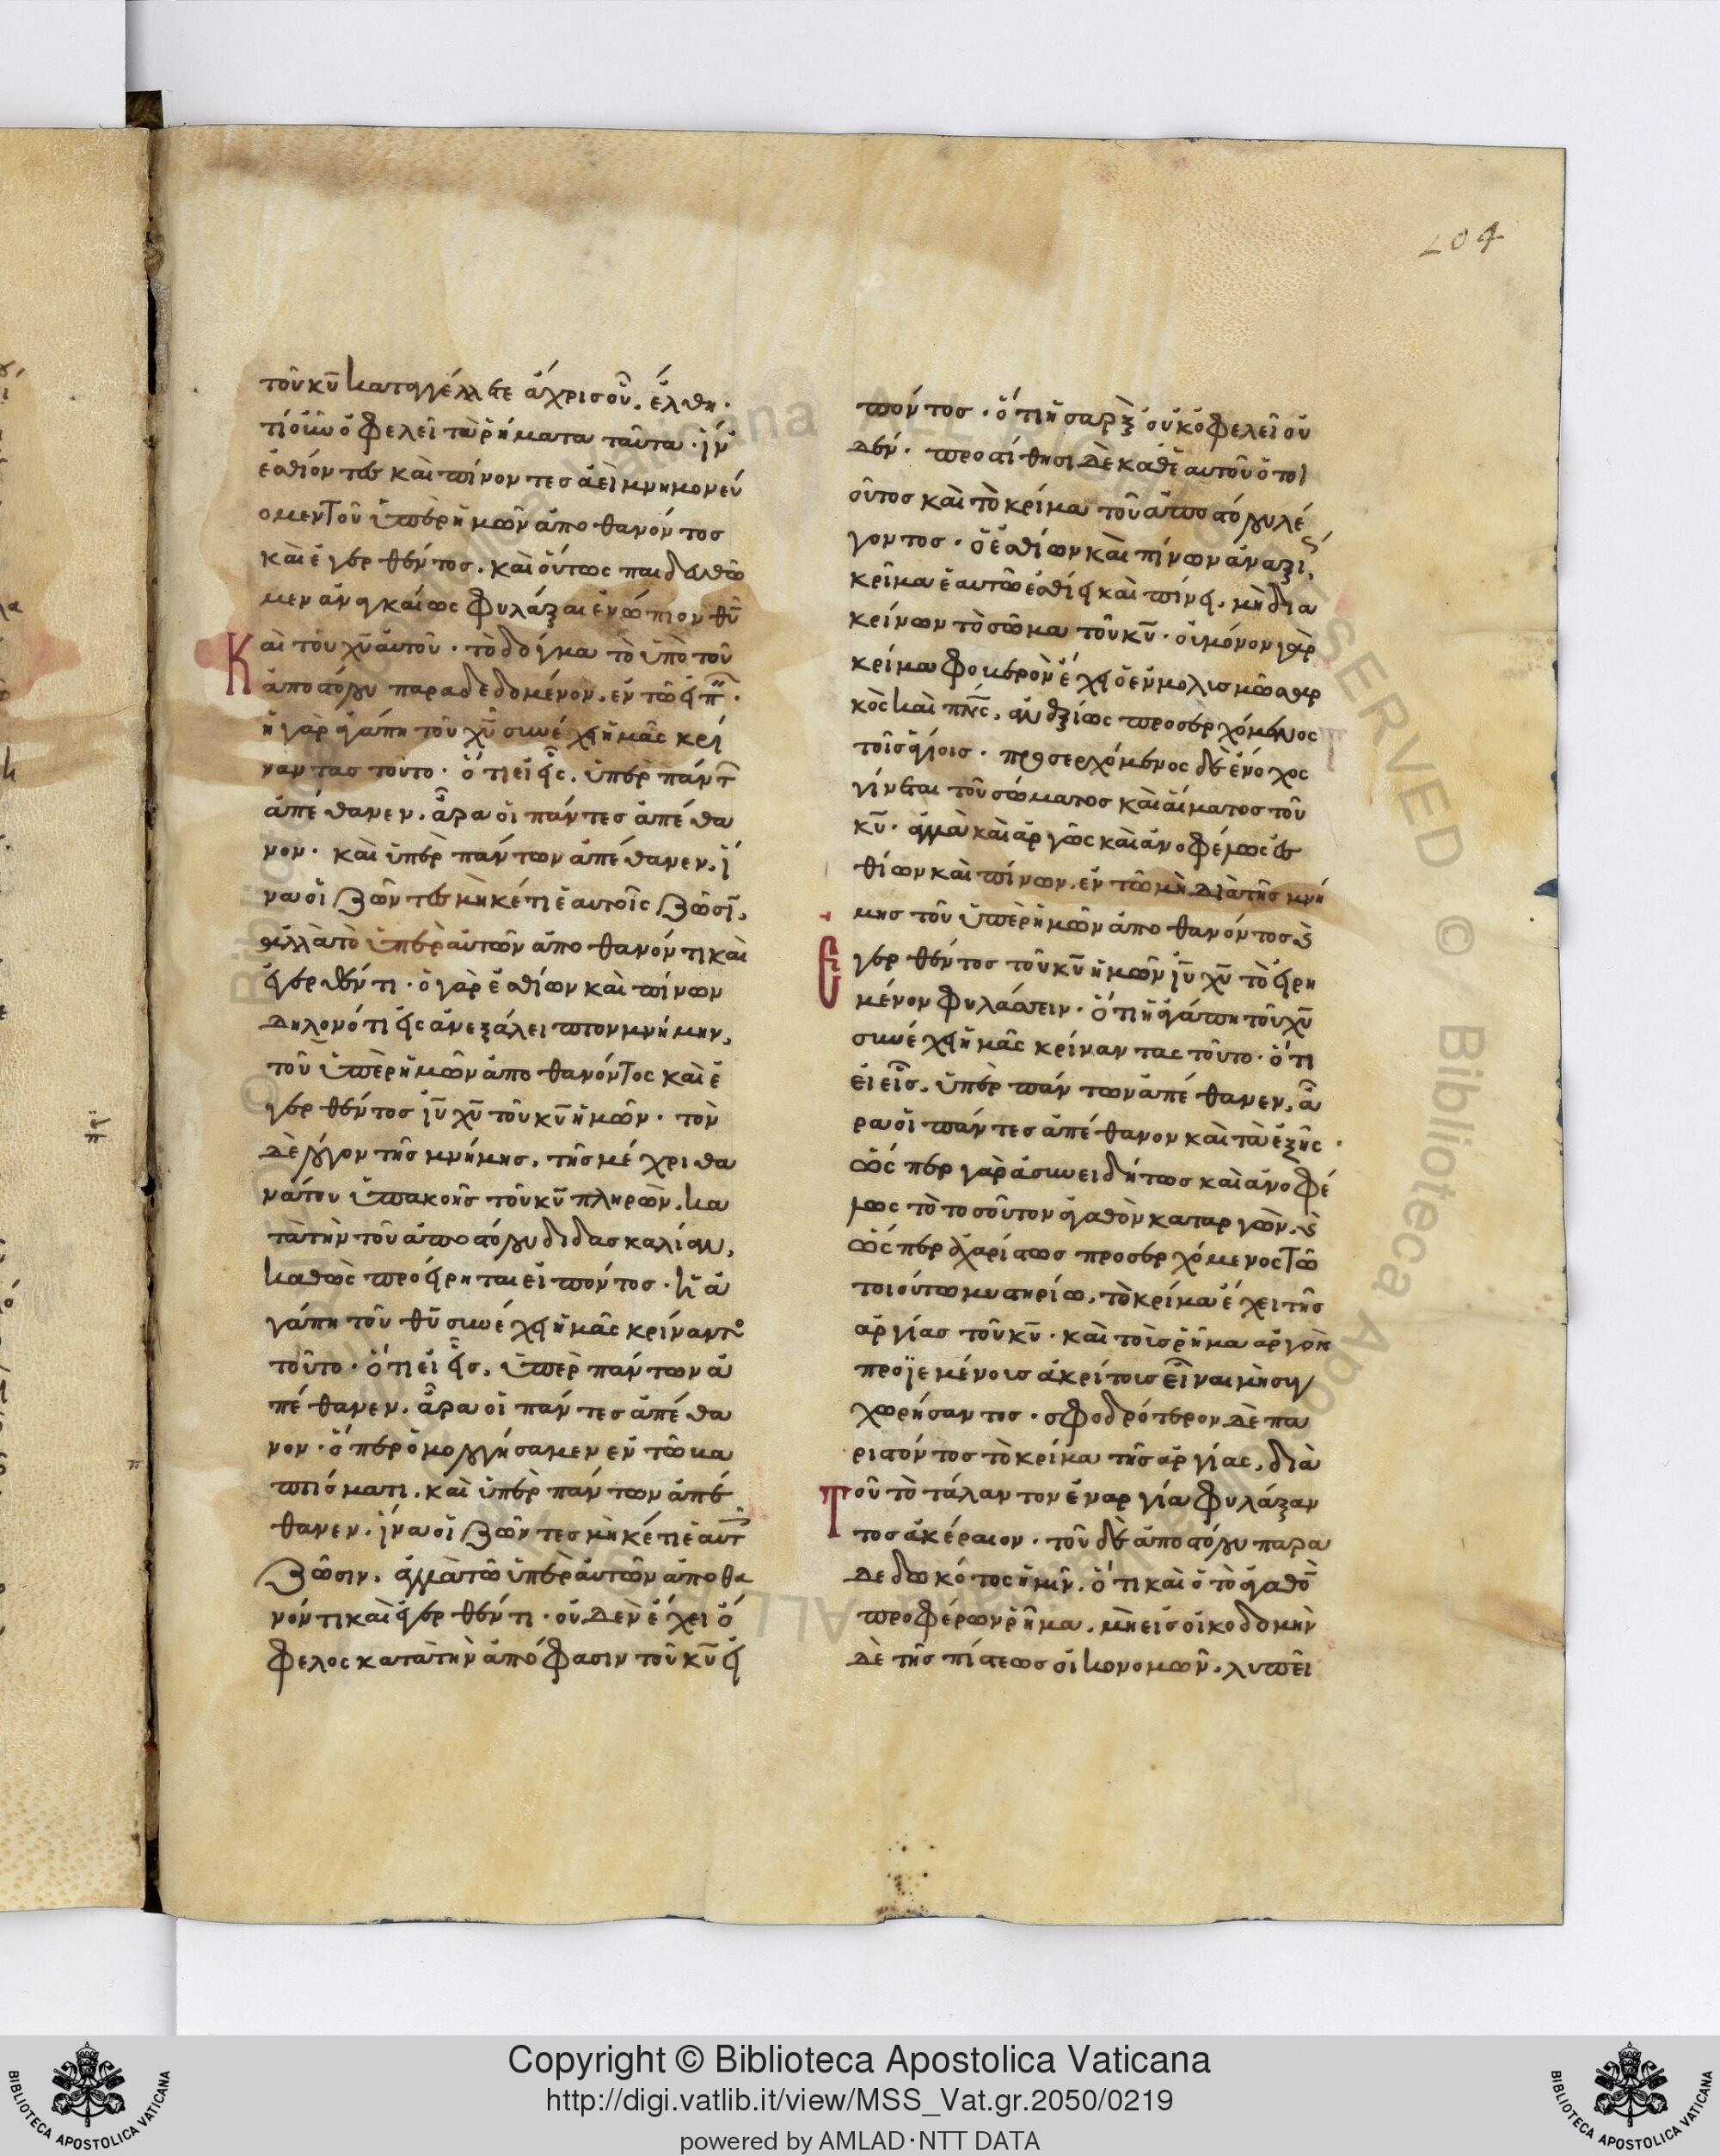 204
τοῦ κῦ καταγγέλλετε ἄχρις οὗ, ἔλθη·
τί οὖν ὀφελεῖ τὰ ῥήματα ταῦτα· ἵν
ἐσθίοντες καὶ πίνοντες ἀεὶ μνημονεύ
ομεν τοῦ ὑπὲρ ἡμῶν ἀποθανόντος
καὶ ἐγερθέντος. καὶ οὕτως παιδευθῶ
μεν ἀναγκαίως φυλάξαι ἐνώπιον θῦ
Καὶ τοῦ χῦ αὐτοῦ· τὸ δόγμα τὸ ὑπὸ τοῦ
ἀποστόλου παραδεδομένον. ἐν τῶ εἰπ·
ἡ γὰρ ἀγάπη τοῦ χῦ συνέχει ἡμᾶς κρί
ναντας τοῦτο· ὅτι εἰ εἷς, ὑπὲρ πάντ
ἀπέθανεν. ἆρα οἱ πάντες ἀπέθα
νον· καὶ ὑπὲρ πάντων ἀπέθανεν, ἵ
να οἱ ζῶντες μηκέτι ἑαυτοῖς ζῶσι,
ἀλλὰ τὸ ὑπὲρ αὐτῶν ἀποθανόντι καὶ
ἐγερθέντι· ὁ γὰρ ἐσθίων καὶ πίνων
δηλονότι εἰς ἀνεξάλειπτον μνήμην,
τοῦ ὑπὲρ ἡμῶν ἀποθανόντος καὶ ἐ
γερθέντος ἰῦ χῦ τοῦ κῦ ἡμῶν· τὸν
δὲ λόγον τῆς μνήμης, τῆς μέχρι θα
νάτου ὑπακοῆς τοῦ κῦ πληρῶν, κα
τὰ τὴν τοῦ ἀποστόλου διδασκαλίαν,
καθὼς προείρηται εἰπόντος· ἡ ἀ
γάπη τοῦ θῦ συνέχει ἡμᾶς κρίναντ
τοῦτο· ὅτι εἰ εἷς, ὑπὲρ πάντων ἀ
πέθανεν. ἆρα οἱ πάντες ἀπέθα
νον· ὅπερ ὁμολογήσαμεν ἐν τῶ βα
πτίσματι. καὶ ὑπὲρ πάντων ἀπέ
θανεν. ἵνα οἱ ζῶντες μηκέτι ἑαυτ
ζῶσιν. ἀλλὰ τῶ ὑπὲρ αὐτῶν ἀποθα
νόντι καὶ ἐγερθέντι· οὐδὲν ἔχει ὄ
φελος κατὰ τὴν ἀπόφασιν τοῦ κῦ εἰ
πόντος· ὅτι ἡ σαρξ οὐκ ὀφελεῖ οὐ
δέν· προστίθησι δὲ καθ ἑαυτοῦ ὁ τοι
οῦτος καὶ τὸ κρίμα τοῦ ἀποστόλου λέ
γοντος· ὁ ἐσθίων καὶ πίνων ἀναξί,
κρῖμα ἑαυτῶ ἐσθίει καὶ πίνει, μὴ δια
κρίνων τὸ σῶμα τοῦ κῦ· οὐ μόνον γὰρ
κρίμα φοβερὸν ἔχει ὁ ἐν μολυσμῶ σαρ
κὸς καὶ πνς, ἀναξίως προσερχόμενος
τοῖς ἁγίοις· προσερχόμενος δὲ ἔνοχος
γίνεται τοῦ σώματος καὶ αἵματος τοῦ
κῦ· ἀλλὰ καὶ ἀργῶς καὶ ἀνοφέλως ἐσ
θίων καὶ πίνων. ἐν τῶ μὴ διὰ τῆς μνή
μης τοῦ ὑπὲρ ἡμῶν ἀποθανόντος κ
Εγερθέντος τοῦ κῦ ἡμῶν ἰῦ χῦ τὸ εἰρη
μένον φυλάσσειν· ὅτι ἡ ἀγάπη τοῦ χῦ
συνέχει ἡμᾶς κρίναντας τοῦτο· ὅτι
εἰ εἷς. ὑπὲρ πάντων ἀπέθανεν, ἆ
ρα οἱ πάντες ἀπέθανον καὶ τὰ ἑξῆς·
ὥσπερ γὰρ ἀσυνειδήτως καὶ ἀνοφέ
λως τὸ τοσοῦτον ἀγαθὸν καταργῶν. κ
ὥσπερ ἀχαρίστως προσερχόμενος τῶ
τοιούτω μυστηρίω, τὸ κρίμα ἔχει τῆς
ἀργίας τοῦ κῦ· καὶ τοῖς ῥῆμα ἀργὸν
προϊεμένοις ἀκρίτοις εἶναι μὴ συγ
χωρήσαντος· σφοδρότερον δὲ πα
ριστόντος τὸ κρίμα τῆς ἀργίας, διὰ
Τοῦ τὸ τάλαντον ἐν ἀργία φυλάξαν
τος ἀκέραιον· τοῦ δὲ ἀποστόλου παρα
δεδωκότος ἡμῖν. ὅτι καὶ ὁ τὸ ἀγαθὸ
προφέρων ῥῆμα. μὴ εἰς οἰκοδομὴν
δὲ τῆς πίστεως οἰκονομῶν. λυπεῖ
Copyright © Biblioteca Apostolica Vaticana
http://digi.vatlib.it/view/MSS_Vat.gr.2050/0219
powered by AMLAD·NTT DATA